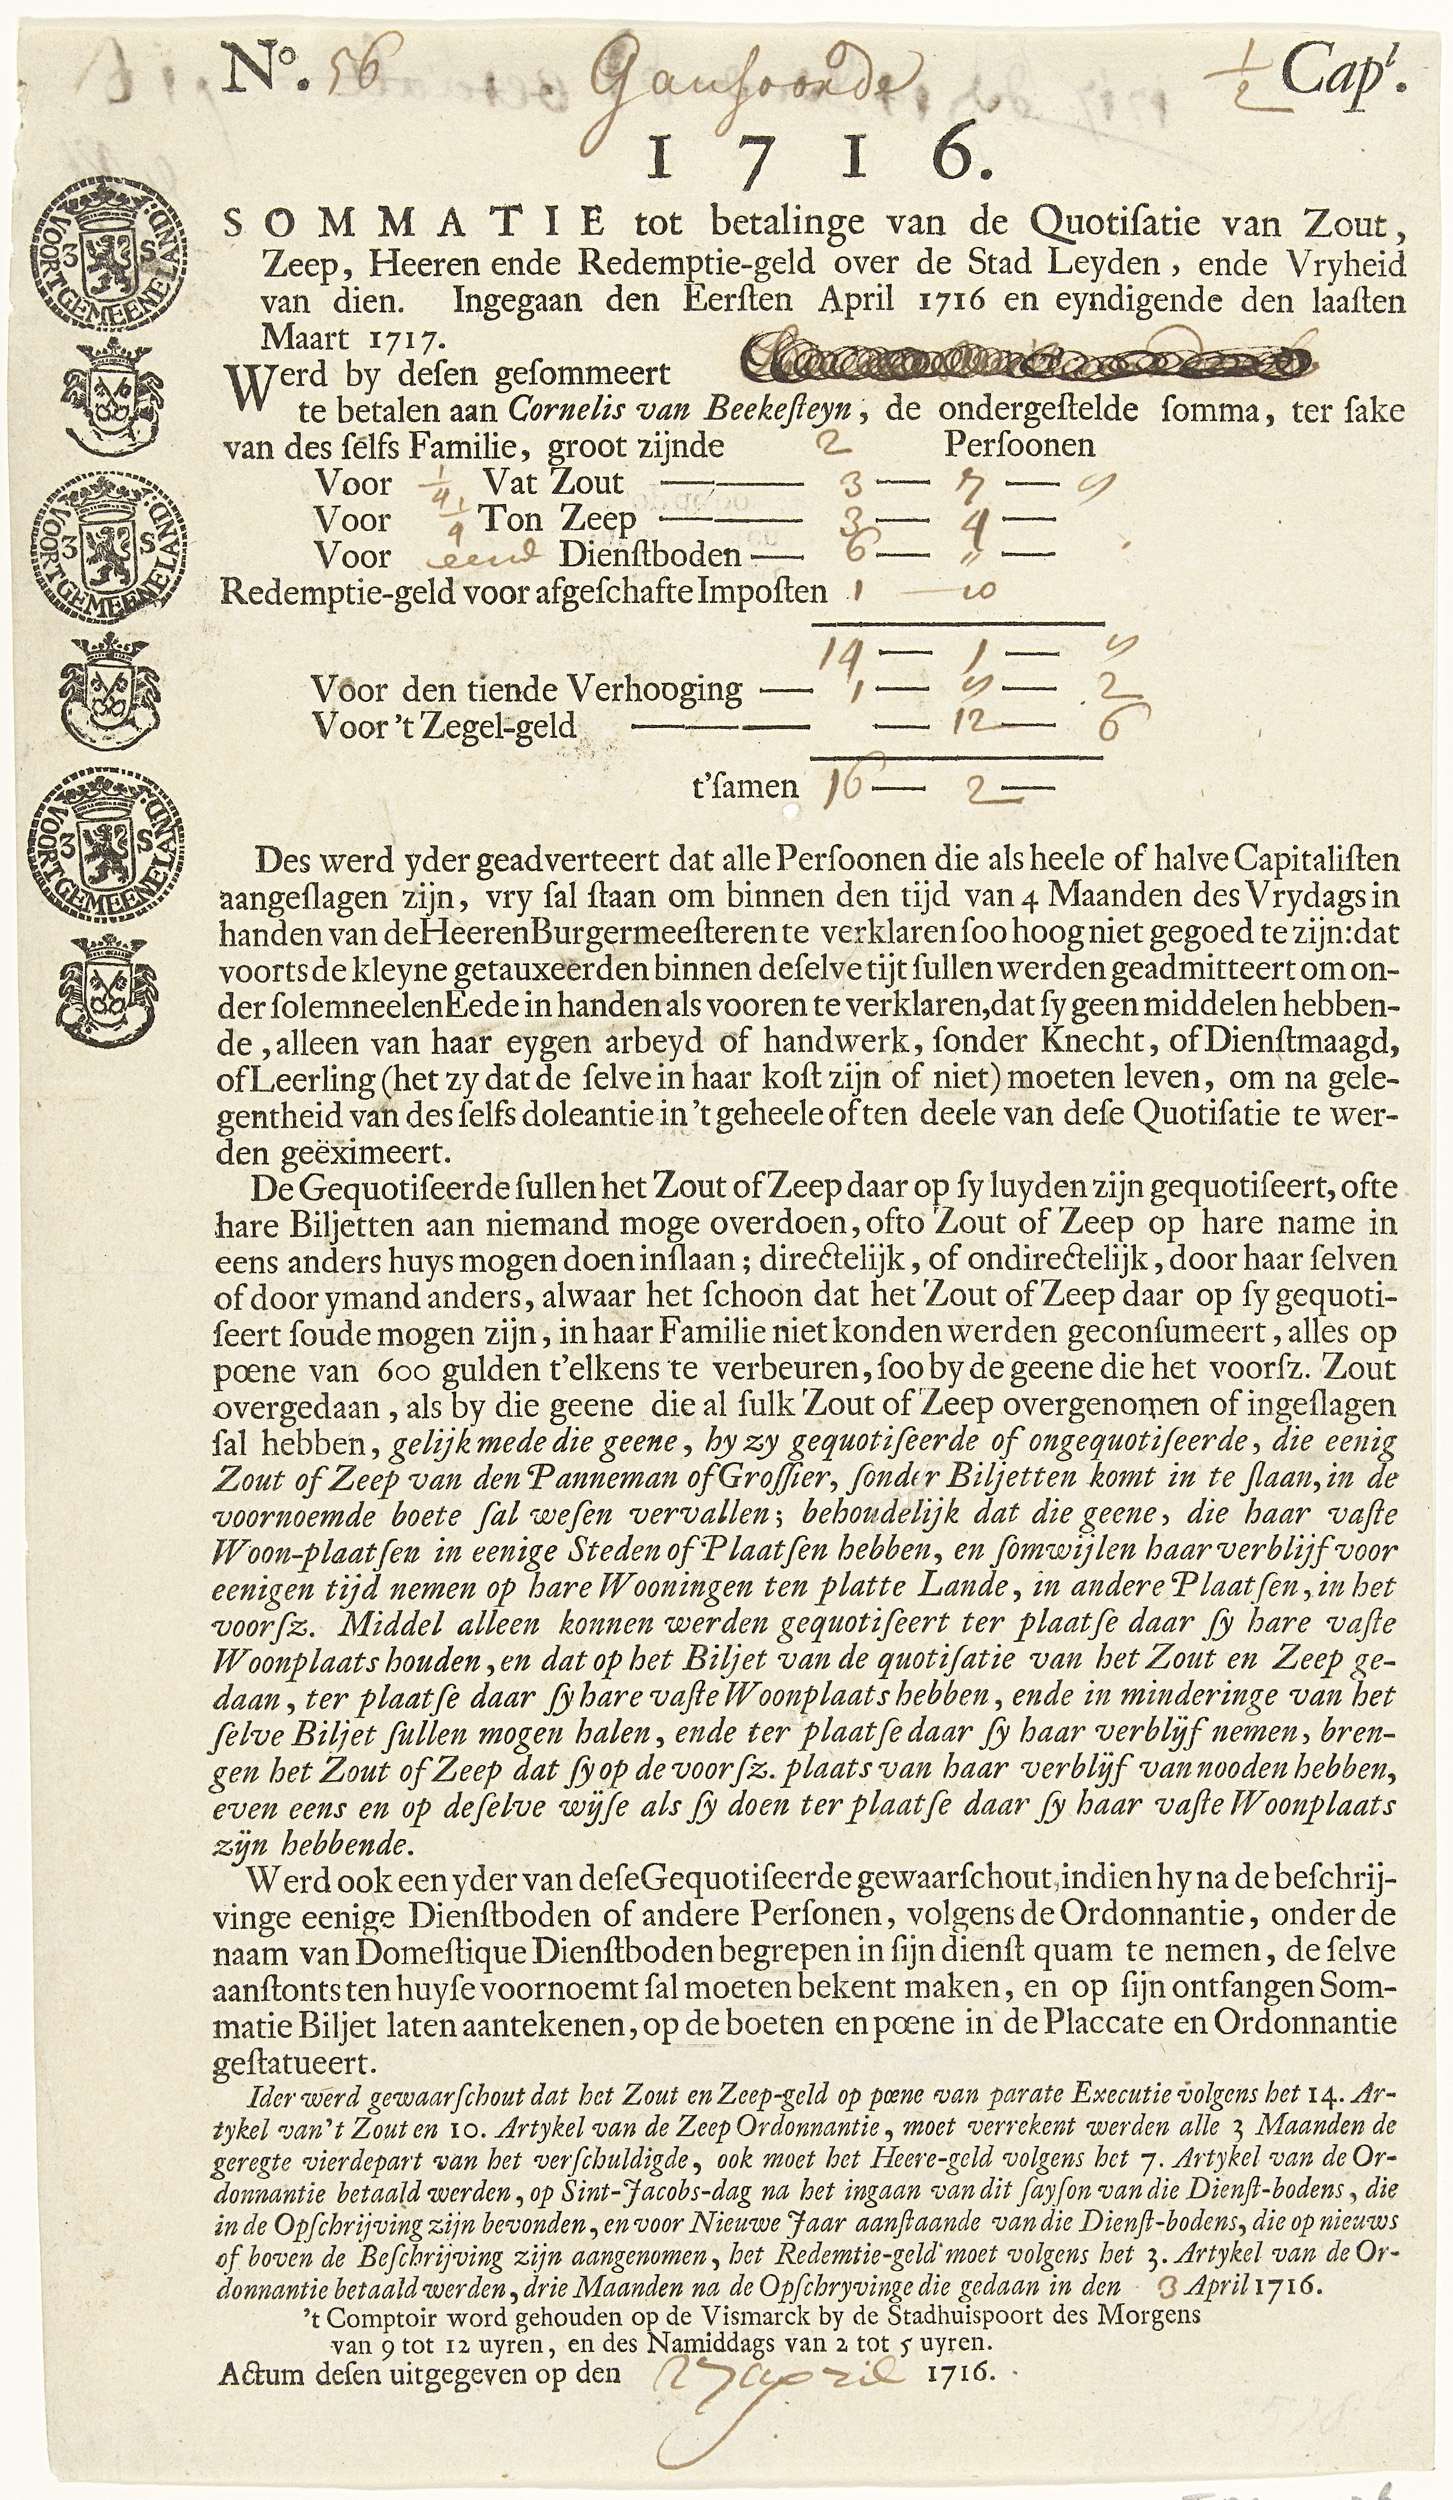 No. 56 Gansoorde ½ Capl.
1 7 1 6.
SOMMATIE tot betalinge van de Quotiſatie van Zout,
Zeep, Heeren ende Redemptie-geld over de Stad Leyden, ende Vryheid
van dien. Ingegaan den Eerſten April 1716 en eyndigende den laaſten
Maart 1717.
Werd by deſen geſommeert
te betalen aan Cornelis van Beekeſteyn, de ondergeſtelde ſomma, ter ſake
van des ſelfs Familie, groot zijnde 2 Perſoonen
Voor ¼ Vat Zout — 3 — 7 —
Voor ¼ Ton Zeep — 3 — 4 —
Voor eene Dienſtboden — 6 — „ —
Redemptie-geld voor afgeſchafte Impoſten 1 — 10
14 — 1 —
Voor den tiende Verhooging — 1 — — 2
Voor 't Zegel-geld — — 12 — 6
t'ſamen 16 — 2 —
VOORT GEMEENELAND. 3 S
VOORT GEMEENELAND. 3 S
VOORT GEMEENELAND. 3 S
Des werd yder geadverteert dat alle Perſoonen die als heele of halve Capitaliſten
aangeſlagen zijn, vry ſal ſtaan om binnen den tijd van 4 Maanden des Vrydags in
handen van de Heeren Burgermeeſteren te verklaren ſoo hoog niet gegoed te zijn: dat
voorts de kleyne getauxeerden binnen deſelve tijt ſullen werden geadmitteert om on-
der ſolemneelen Eede in handen als vooren te verklaren, dat ſy geen middelen hebben-
de, alleen van haar eygen arbeyd of handwerk, ſonder Knecht, of Dienſtmaagd,
of Leerling (het zy dat de ſelve in haar koſt zijn of niet) moeten leven, om na gele-
gentheid van des ſelfs doleantie in 't geheele of ten deele van deſe Quotiſatie te wer-
den geëximeert.
De Gequotiſeerde ſullen het Zout of Zeep daar op ſy luyden zijn gequotiſeert, ofte
hare Biljetten aan niemand moge overdoen, ofto Zout of Zeep op hare name in
eens anders huys mogen doen inſlaan; directelijk, of ondirectelijk, door haar ſelven
of door ymand anders, alwaar het ſchoon dat het Zout of Zeep daar op ſy gequoti-
ſeert ſoude mogen zijn, in haar Familie niet konden werden geconſumeert, alles op
pœne van 600 gulden t'elkens te verbeuren, ſoo by de geene die het voorſz. Zout
overgedaan, als by die geene die al ſulk Zout of Zeep overgenomen of ingeſlagen
ſal hebben, gelijk mede die geene, hy zy gequotiſeerde of ongequotiſeerde, die eenig
Zout of Zeep van den Panneman of Groſſier, ſonder Biljetten komt in te ſlaan, in de
voornoemde boete ſal weſen vervallen; behoudelijk dat die geene, die haar vaſte
Woon-plaatſen in eenige Steden of Plaatſen hebben, en ſomwijlen haar verblijf voor
eenigen tijd nemen op hare Wooningen ten platte Lande, in andere Plaatſen, in het
voorſz. Middel alleen konnen werden gequotiſeert ter plaatſe daar ſy hare vaſte
Woonplaats houden, en dat op het Biljet van de quotiſatie van het Zout en Zeep ge-
daan, ter plaatſe daar ſy hare vaſte Woonplaats hebben, ende in minderinge van het
ſelve Biljet ſullen mogen halen, ende ter plaatſe daar ſy haar verblijf nemen, bren-
gen het Zout of Zeep dat ſy op de voorſz. plaats van haar verblijf van nooden hebben,
even eens en op deſelve wijſe als ſy doen ter plaatſe daar ſy haar vaſte Woonplaats
zijn hebbende.
Werd ook een yder van deſe Gequotiſeerde gewaarſchout, indien hy na de beſchrij-
vinge eenige Dienſtboden of andere Perſonen, volgens de Ordonnantie, onder de
naam van Domeſtique Dienſtboden begrepen in ſijn dienſt quam te nemen, de ſelve
aanſtonts ten huyſe voornoemt ſal moeten bekent maken, en op ſijn ontfangen Som-
matie Biljet laten aantekenen, op de boeten en pœne in de Placcate en Ordonnantie
geſtatueert.
Ider werd gewaarſchout dat het Zout en Zeep-geld op pœne van parate Executie volgens het 14. Ar-
tykel van't Zout en 10. Artykel van de Zeep Ordonnantie, moet verrekent werden alle 3 Maanden de
geregte vierdepart van het verſchuldigde, ook moet het Heere-geld volgens het 7. Artykel van de Or-
donnantie betaald werden, op Sint-Jacobs-dag na het ingaan van dit ſayſon van die Dienſt-bodens, die
in de Opſchrijving zijn bevonden, en voor Nieuwe Jaar aanſtaande van die Dienſt-bodens, die op nieuws
of boven de Beſchrijving zijn aangenomen, het Redemtie-geld moet volgens het 3. Artykel van de Or-
donnantie betaald werden, drie Maanden na de Opſchryvinge die gedaan in den 3 April 1716.
't Comptoir word gehouden op de Vismarck by de Stadhuispoort des Morgens
van 9 tot 12 uyren, en des Namiddags van 2 tot 5 uyren.
Actum deſen uitgegeven op den 27 april 1716.